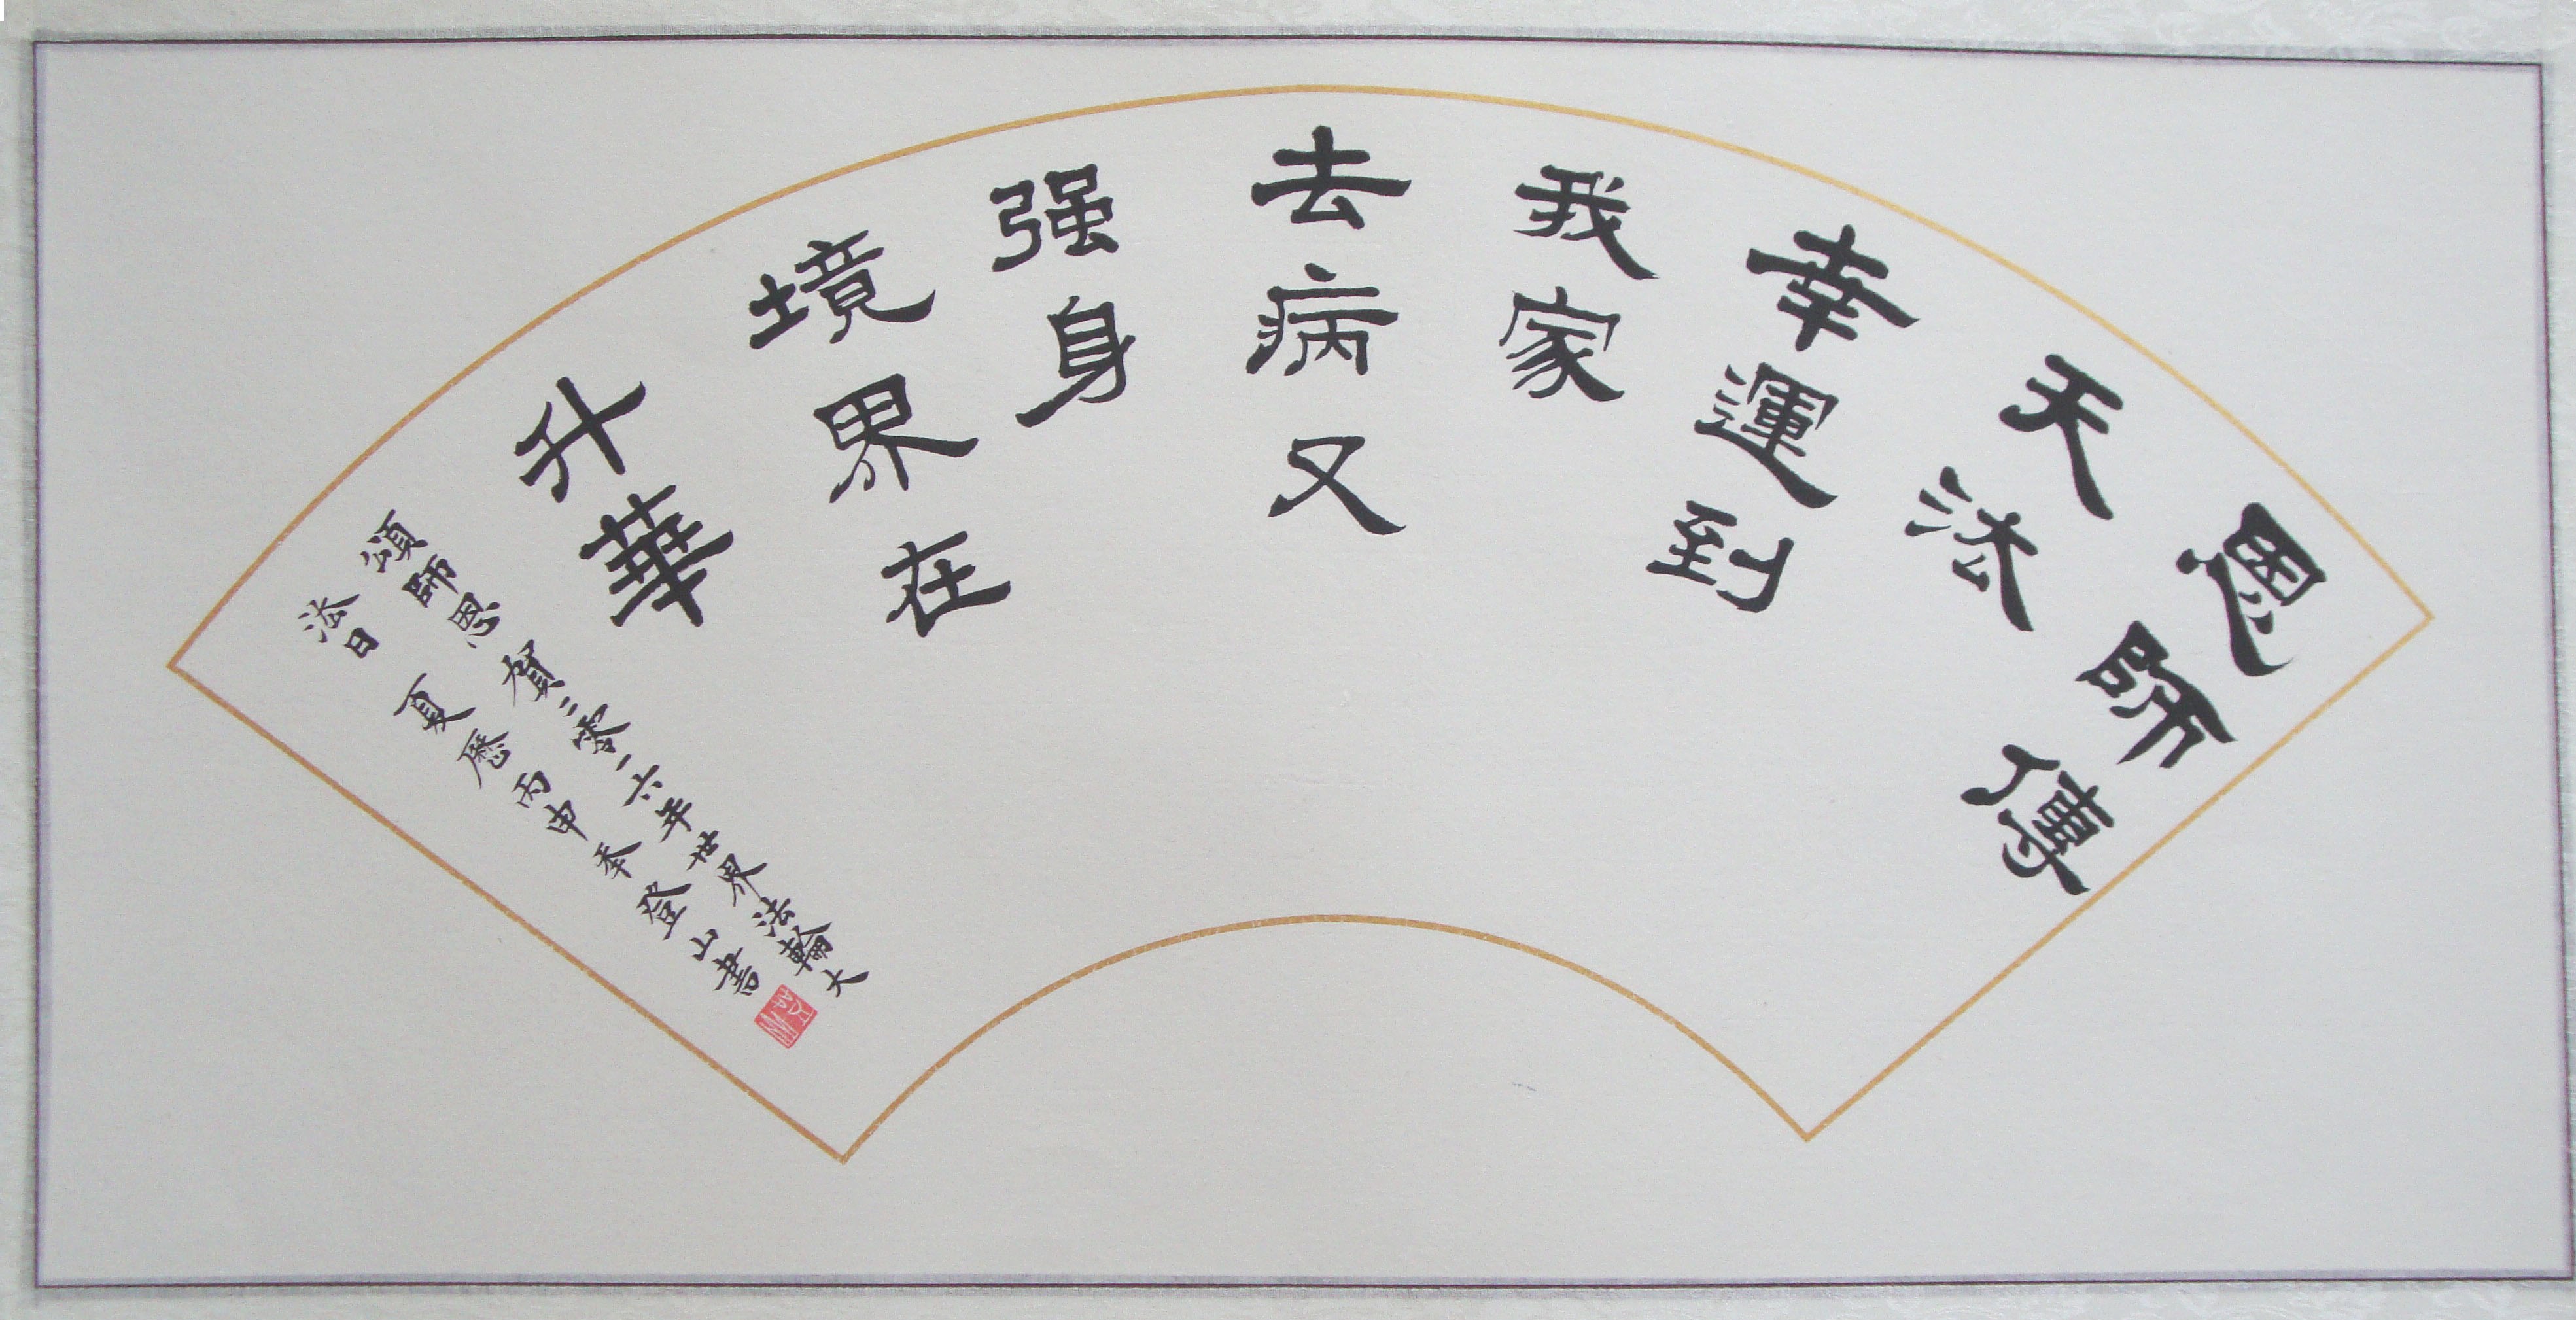 恩師傳
天法
幸運到
我家
去病又
强身
境界在
升華
頌師恩 賀二零一六年世界法輪大
法日 夏歷丙申季登山書